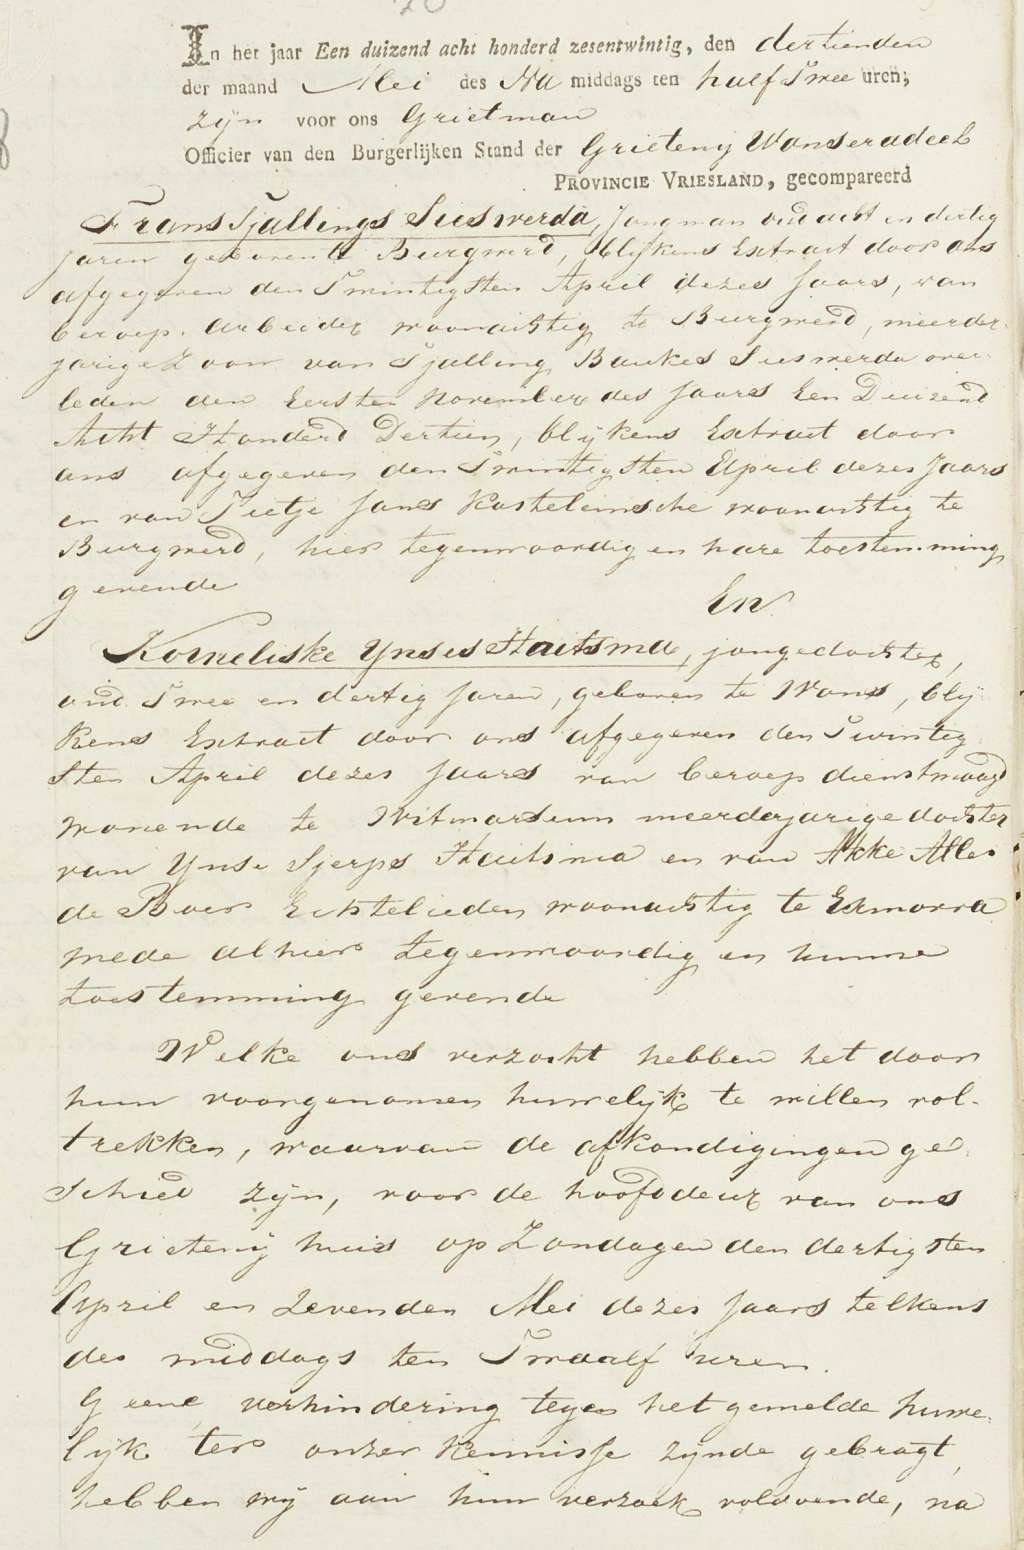 In het jaar Een duizend acht honderd zesentwintig, den dertienden
der maand Mei des Na middags ten half Twee uren;
zijn voor ons Grietman
Officier van den Burgerlijken Stand der Grietenij Wonseradeel
PROVINCIE VRIESLAND, gecompareerd
Frans Tjallings Sieswerda, Jongman oud acht en dertig
jaren geboren te Burgwerd, blijkens Extract door ons
afgegeven den Twintigsten April dezes Jaars, van
beroep arbeider woonachtig te Burgwerd, meerder-
jarige Zoon van Tjalling Baukes Sieswerda over-
leden den Eersten November des Jaars Een Duizend
Acht Honderd Dertien, blijkens Extract door
ons afgegeven den Twintigsten April dezes Jaars
en van Tietje Jans Kasteleinsche woonachtig te
Burgwerd, hier tegenwoordig en hare toestemming
gevende
En
Korneliske Ynses Haitsma, jongedochter,
oud Twee en dertig Jaren, geboren te Wons, blij
kens Extract door ons afgegeven den Twintig
sten April dezes Jaars van beroep dienstmaagd
wonende te Witmarsum meerderjarige dochter
van Ynse Sjerps Haitsma en van Akke Alles
de Boer Echtelieden woonachtig te Exmorra
mede alhier tegenwoordig en hunne
toestemming gevende
Welke ons verzocht hebben het door
hun voorgenomen huwelijk te willen vol-
trekken, waarvan de afkondigingen ge
schied zijn, voor de hoofddeur van ons
Grietenij huis op Zondagen den dertigsten
April en Zevenden Mei dezes Jaars telkens
des middags ten Twaalf uren.
Geene verhindering tegen het gemelde huwe-
lijk ter onzer kennisse zijnde gebragt,
hebben wij aan hun verzoek voldoende, na